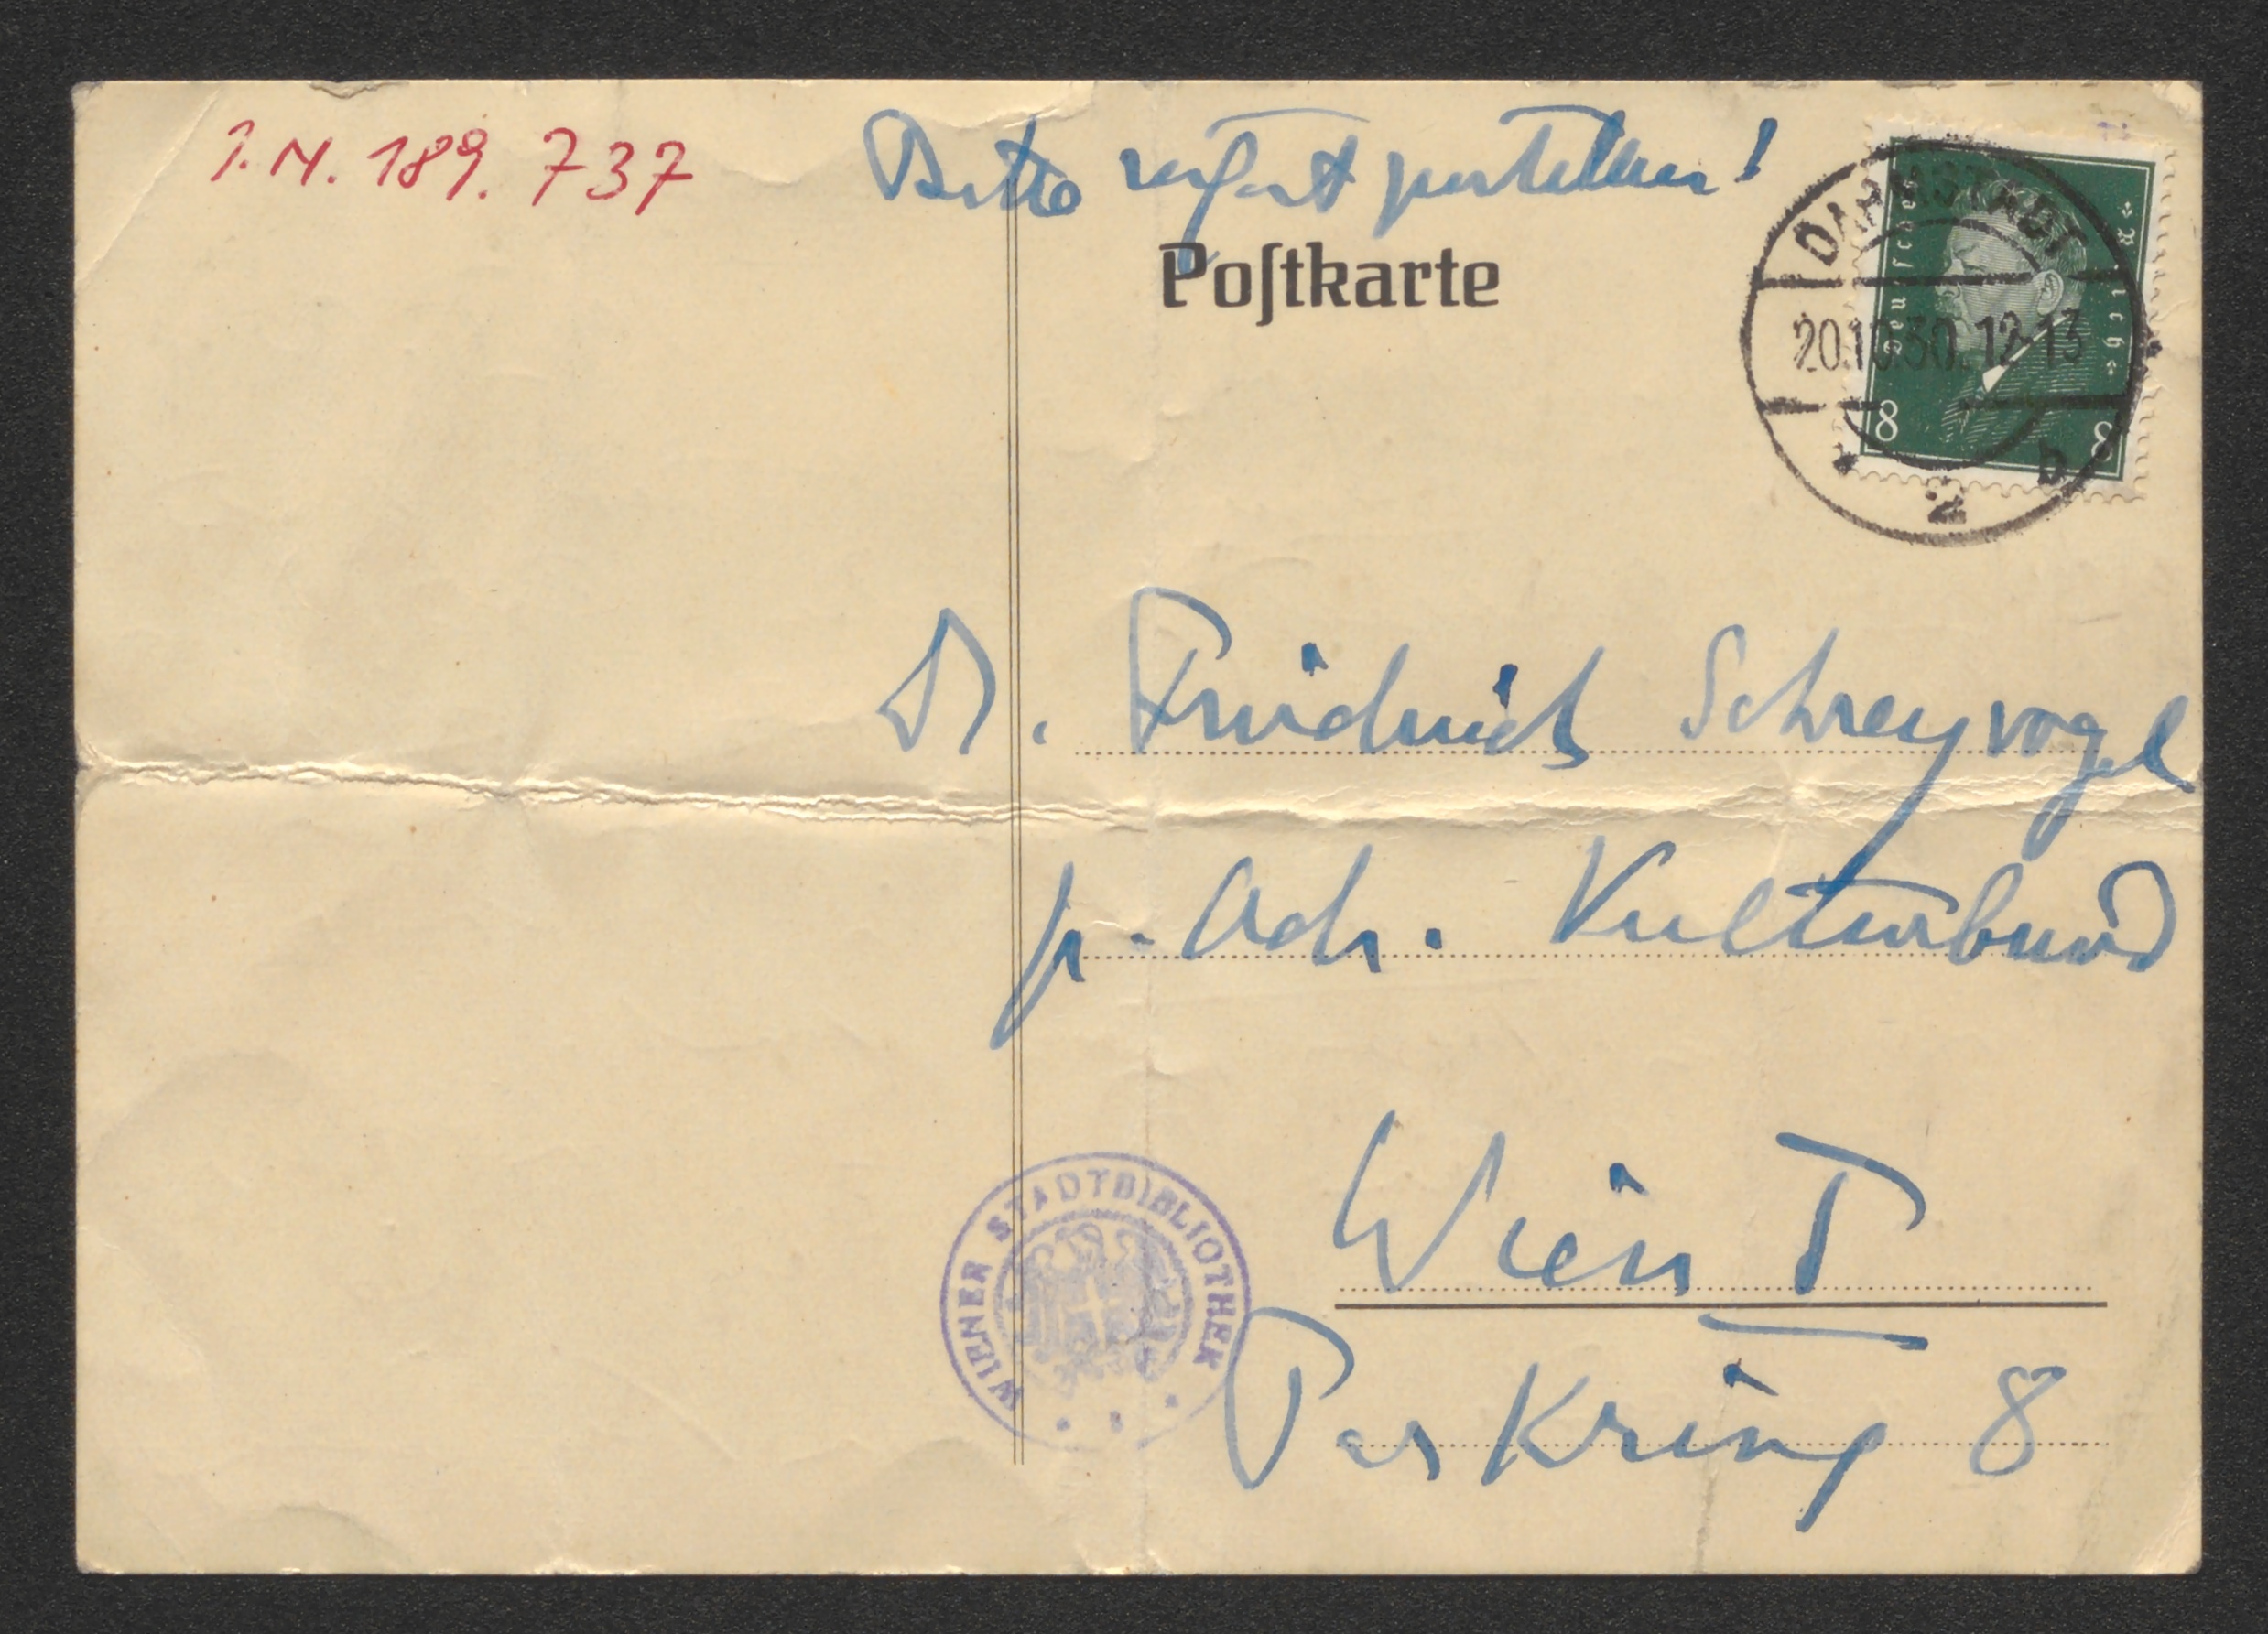 J.N. 189.737
Bitte sofort zustellen!
Poſtkarte
DARMSTADT
20.10.30. 12-13
* 2 b
Deutsches Reich
8 8
Dr. Friedrich Schreyvogl
p. Adr. Kulturbund
Wien I
WIENER STADTBIBLIOTHEK
Parkring 8